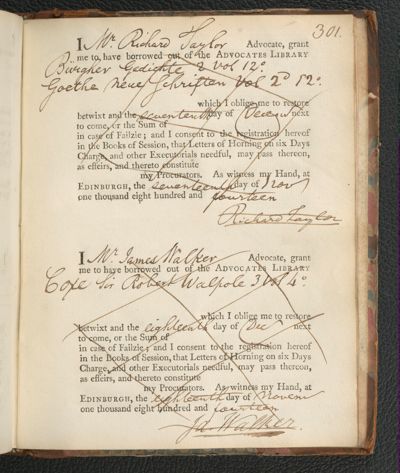 301.
I Mr. Richard Taylor Advocate, grant
me to, have borrowed out of the ADVOCATES LIBRARY
Burgher Gedichte 2 vol 12o.
Goethe neue Schriften Vol 2d 12o.
which I oblige me to restore
betwixt and the seventeenth day of Decem next
to come, or the Sum of
in case of Failzie; and I consent to the registration hereof
in the Books of Session, that Letters of Horning on six Days
Charge, and other Executorials needful, may pass thereon,
as effeirs, and thereto constitute
my Procurators. As witness my Hand, at
EDINBURGH, the seventeenth day of Nov
one thousand eight hundred and fourteen
Richard Taylor
I Mr. James Walker Advocate, grant
me to have borrowed out of the ADVOCATES LIBRARY
Coxe Sir Robert Walpole 3 vol 4o.
which I oblige me to restore
betwixt and the eighteenth day of Dec next
to come, or the Sum of
in case of Failzie; and I consent to the registration hereof
in the Books of Session, that Letters of Horning on six Days
Charge, and other Executorials needful, may pass thereon,
as effeirs, and thereto constitute
my Procurators. As witness my Hand, at
EDINBURGH, the eighteenth day of Novem
one thousand eight hundred and fourteen
Js. Walker.